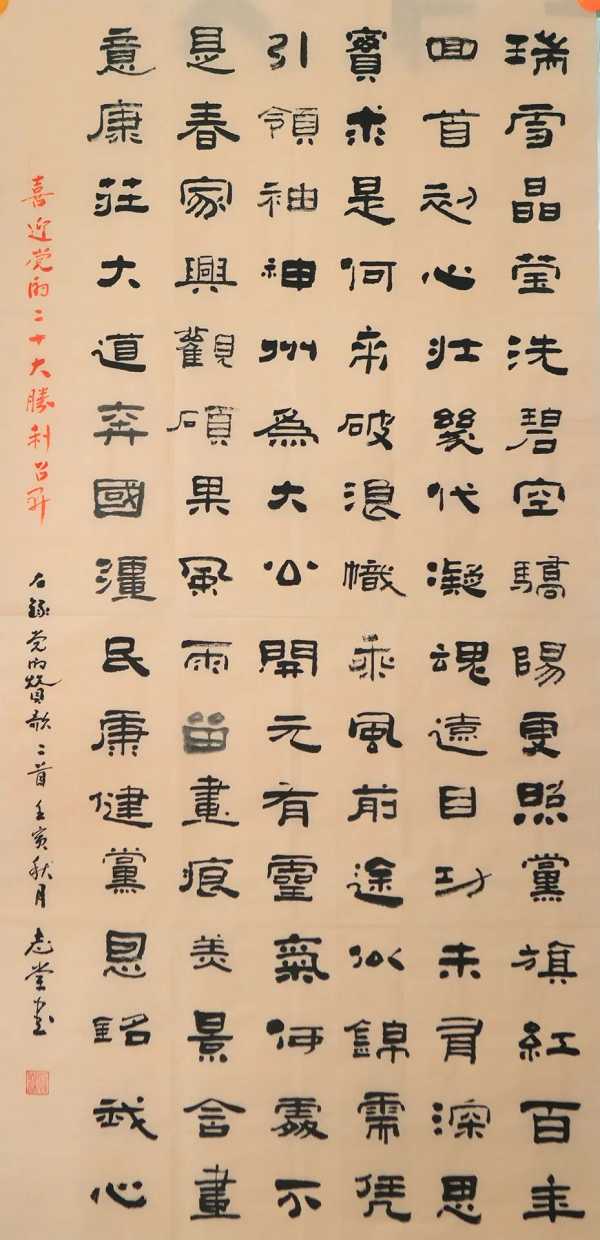 瑞雪晶莹洗碧空驕陽更照黨旗紅百年
回首初心壯幾代凝魂遠目功未有深思
實求是何來破浪幟乘風前途似錦需凭
引領袖神州為大公開元有靈氣何處不
是春家興觀碩果風雨留畫痕美景含畫
意康莊大道奔國疆民康健黨恩銘我心
喜迎党的二十大勝利召开
右錄党的贊歌二首壬寅秋月志堂書